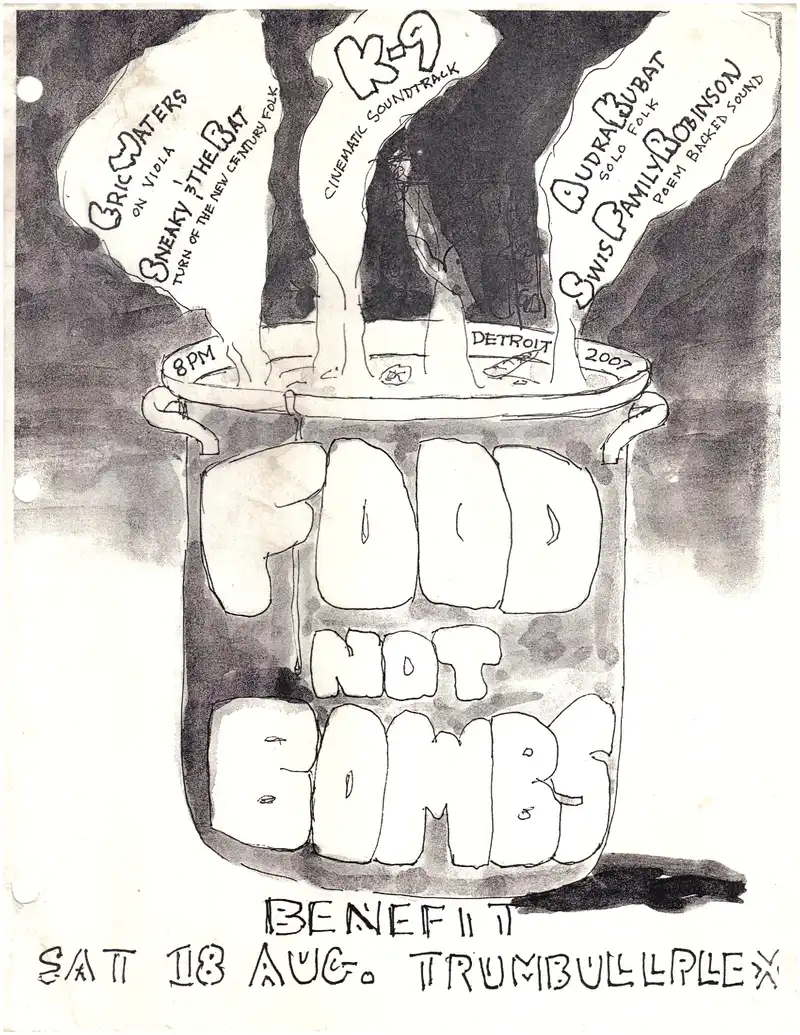 ERIC WATERS
ON VIOLA
SNEAKY & THE RAT
TURN OF THE NEW CENTURY FOLK
K-9
CINEMATIC SOUNDTRACK
AUDRA KUBAT
SOLO FOLK
SWIS FAMILY ROBINSON
POEM BACKED SOUND
8PM
DETROIT
2007
FOOD
NOT
BOMBS
BENEFIT
SAT 18 AUG. TRUMBULLPLEX